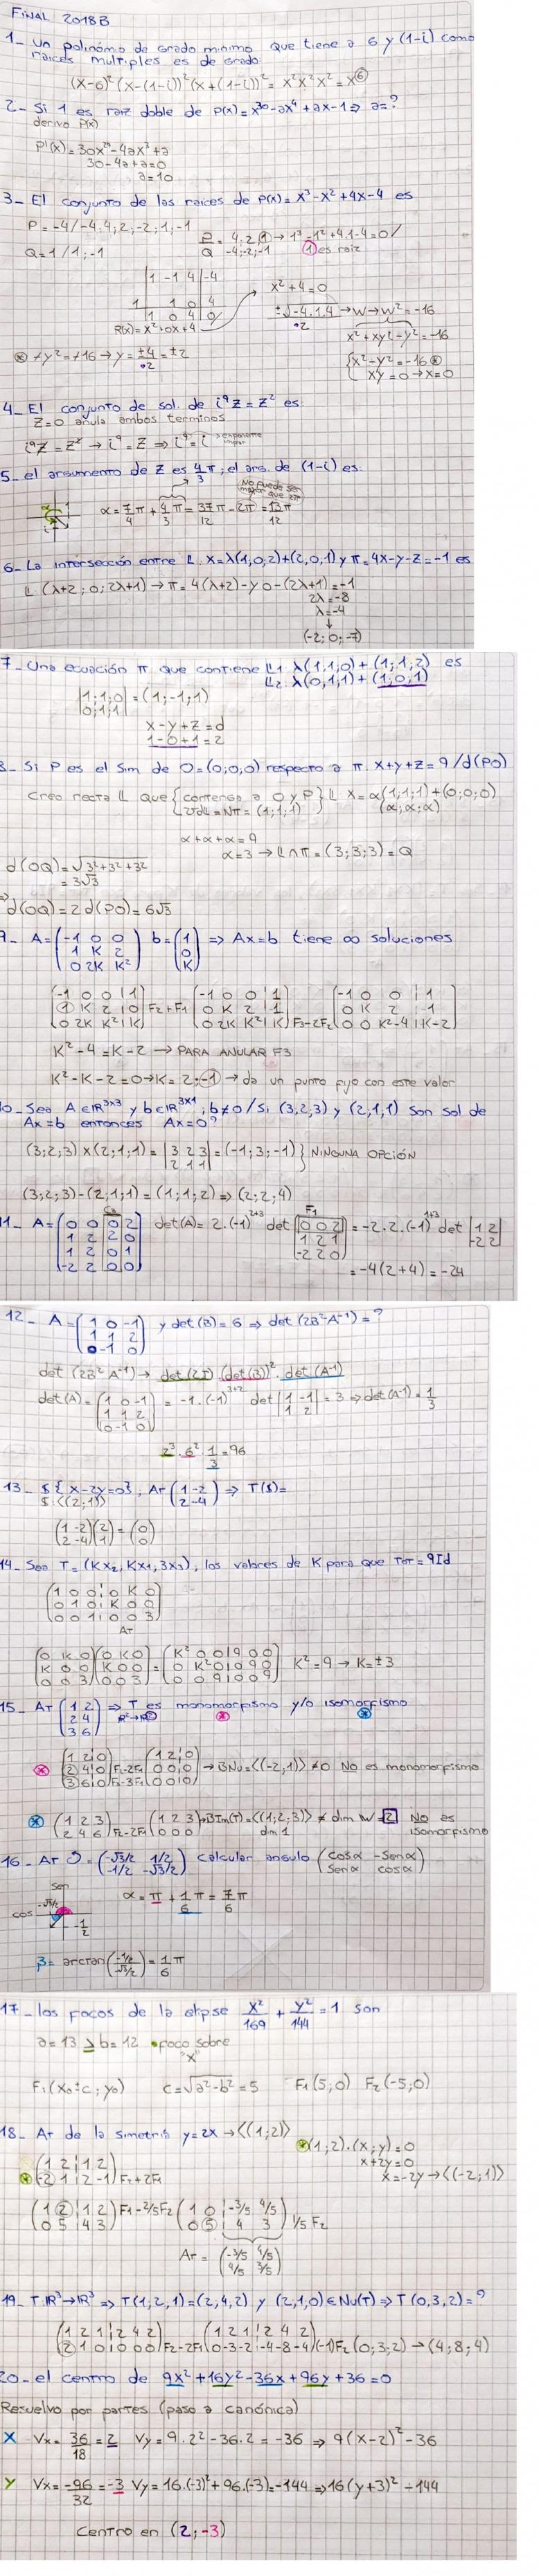 FINAL 2018B
1- Un polinomo de grado mínimo que tiene a 6 y (1-i) como
raíces multiples es de grado:
(x-6)² (x-(1-i))² (x+(1-i))² = x²x²x² = x⑥
2- Si 1 es raiz doble de P(x)= x³⁰-ax⁴+ax-1 => a=?
derivo P(x)
P'(x)= 30x²⁹-4ax³+a
30-4a+a=0
a=10
3- El conjunto de las raices de P(x)= x³-x²+4x-4 es
P= -4/-4;4;2;-2;1;-1
Q=1/1;-1
P/Q = 4;2;① → 1³-1²+4.1-4=0/
-4;-2;-1 ① es raiz
| 1 -1 4 | -4
1 | 1 0 4
| 1 0 4 | 0
R(x)= x²+0x+4
x²+4=0
±√-4.1.4 / .2 → W → W²= -16
x²+xy²-y²= -16
{x²-y²= -16 ⊛
xy=0 → x=0
⊛ +y²=+16 → y= ±4/.2 = ±2
4- El conjunto de sol. de i⁹z = z² es:
Z=0 anula ambos terminos
i⁹z = z² → i⁹ = z => i⁹ = i → exponente impar
5- el argumento de z es 4/3 π; el arg. de (1-i) es:
No puede ser mayor que 2π
α = 7/4 π + 4/3 π = 37π/12 - 2π = 13π/12
6- La intersección entre L: X=λ(1,0,2)+(2,0,1) y π=4x-y-z=-1 es
L (λ+2; 0; 2λ+1) → π= 4(λ+2)-y0-(2λ+1)=-1
2λ=-8
λ=-4
↓
(-2; 0; -7)
7- Una ecuación π que contiene L1 λ(1,1,0)+(1;1;2) es
L2: λ(0,1,1)+(1;0;1)
|1;1;0|
|0;1;1| = (1;-1;1)
x-y+z=d
1-0+1=2
8- Si P es el Sim de O=(0;0;0) respecto a π: x+y+z=9 / d(PO)
Creo recta L que {contenga a O y P
vdL = Nπ= (1;1;1)} L X=α(1;1;1)+(0;0;0)
(α;α;α)
α+α+α=9
α=3 → L∩π=(3;3;3)=Q
d(OQ)=√3²+3²+3²
=3√3
=> d(OQ)=2d(PO)=6√3
9- A=(-1 0 0 / 1 K 2 / 0 2K K²) b=(1 / 0 / K) => Ax=b tiene ∞ soluciones
[-1 0 0 | 1 / ① K 2 | 0 / 0 2K K² | K] F2+F1 [-1 0 0 | 1 / 0 K 2 | 1 / 0 2K K² | K] F3-2F2 [-1 0 0 | 1 / 0 K 2 | 1 / 0 0 K²-4 | K-2]
K²-4=K-2 → PARA ANULAR F3
K²-K-2=0→K=2;-1 → da un punto fijo con este valor
10- Sea A∈R³ˣ³ y b∈R³ˣ¹, b≠0 / Si (3,2,3) y (2,1,1) son sol de
Ax=b entonces Ax=0?
(3;2;3)×(2;1;1)=|3 2 3 / 2 1 1| = (-1;3;-1)} NINGUNA OPCIÓN
(3;2;3)-(2;1;1)=(1;1;2)=>(2;2;4)
11- A=(0 0 0 2 / 1 2 2 0 / 1 2 0 1 / -2 2 0 0) det(A)=2.(-1)²⁺³ det [0 0 2 / 1 2 1 / -2 2 0] F1 = -2.2.(-1)¹⁺³ det |1 2 / -2 2|
= -4(2+4)=-24
12- A=(1 0 -1 / 1 1 2 / 0 -1 0) y det(B)=6 => det(2B²A⁻¹)=?
det(2B²A⁻¹) → det(2I).(det(B))².det(A⁻¹)
det(A)=(1 0 -1 / 1 1 2 / 0 -1 0) = -1.(-1)³⁺² det|1 -1 / 1 2| = 3 => det(A⁻¹)=1/3
2³.6².1/3=96
13- $ {x-2y=0}, AT (1 -2 / 2 -4) => T($)=
$:<(2;1)>
(1 -2 / 2 -4)(2 / 1)=(0 / 0)
14- Sea T=(Kx2, Kx1, 3x3), los valores de K para que ToT=9Id
(1 0 0 | 0 K 0 / 0 1 0 | K 0 0 / 0 0 1 | 0 0 3)
AT
(0 K 0 / K 0 0 / 0 0 3)(0 K 0 / K 0 0 / 0 0 3)=(K² 0 0 | 9 0 0 / 0 K² 0 | 0 9 0 / 0 0 9 | 0 0 9) K²=9 → K=±3
15- AT (1 2 / 2 4 / 3 6) => T es monomorfismo y/o isomorfismo
⊛ (1 2 | 0 / ② 4 | 0 / ③ 6 | 0) F2-2F1 F3-3F1 (1 2 | 0 / 0 0 | 0 / 0 0 | 0) → BNu=<(-2;1)> ≠0 No es monomorfismo
⊛ (1 2 3 / 2 4 6) F2-2F1 (1 2 3 / 0 0 0) → BIm(T)=<(1;2;3)> ≠ dim W=2 No es
dim 1 isomorfismo
16- AT = (-√3/2 1/2 / -1/2 -√3/2) calcular angulo (cosα -senα / senα cosα)
sen
cos -√3/2
-1/2
α=π+1/6 π=7/6 π
β= arctan(-1/2 / -√3/2)=1/6 π
17- los focos de la elipse x²/169 + y²/144 = 1 son
a=13 > b=12 • foco sobre
"x"
F:(x0±c; y0) c=√a²-b²=5 F1(5;0) F2(-5;0)
18- AT de la simetria y=2x →<(1;2)>
⊛(1;2).(x;y)=0
x+2y=0
x=-2y →<(-2;1)>
⊛ (1 2 | 1 2 / -2 1 | 2 -1) F2+2F1
(1 ② | 1 2 / 0 5 | 4 3) F1-2/5F2 (1 0 | -3/5 4/5 / 0 ⑤ | 4 3) 1/5 F2
AT= (-3/5 4/5 / 4/5 3/5)
19- T:R³→R³ => T(1,2,1)=(2,4,2) y (2,1,0)∈Nu(T) => T(0,3,2)=?
(1 2 1 | 2 4 2 / ② 1 0 | 0 0 0) F2-2F1 (1 2 1 | 2 4 2 / 0 -3 -2 | -4 -8 -4) (-1)F2 (0;3;2) → (4;8;4)
20- el centro de 9x²+16y²-36x+96y+36=0
Resuelvo por partes (paso a canónica)
X Vx= 36/18=2 Vy=9.2²-36.2=-36 => 9(x-2)²-36
Y Vx= -96/32=-3 Vy=16.(-3)²+96.(-3)=-144 => 16(y+3)²-144
Centro en (2;-3)